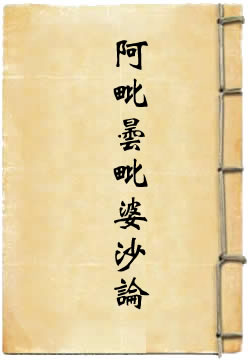 阿毗曇毗婆沙論